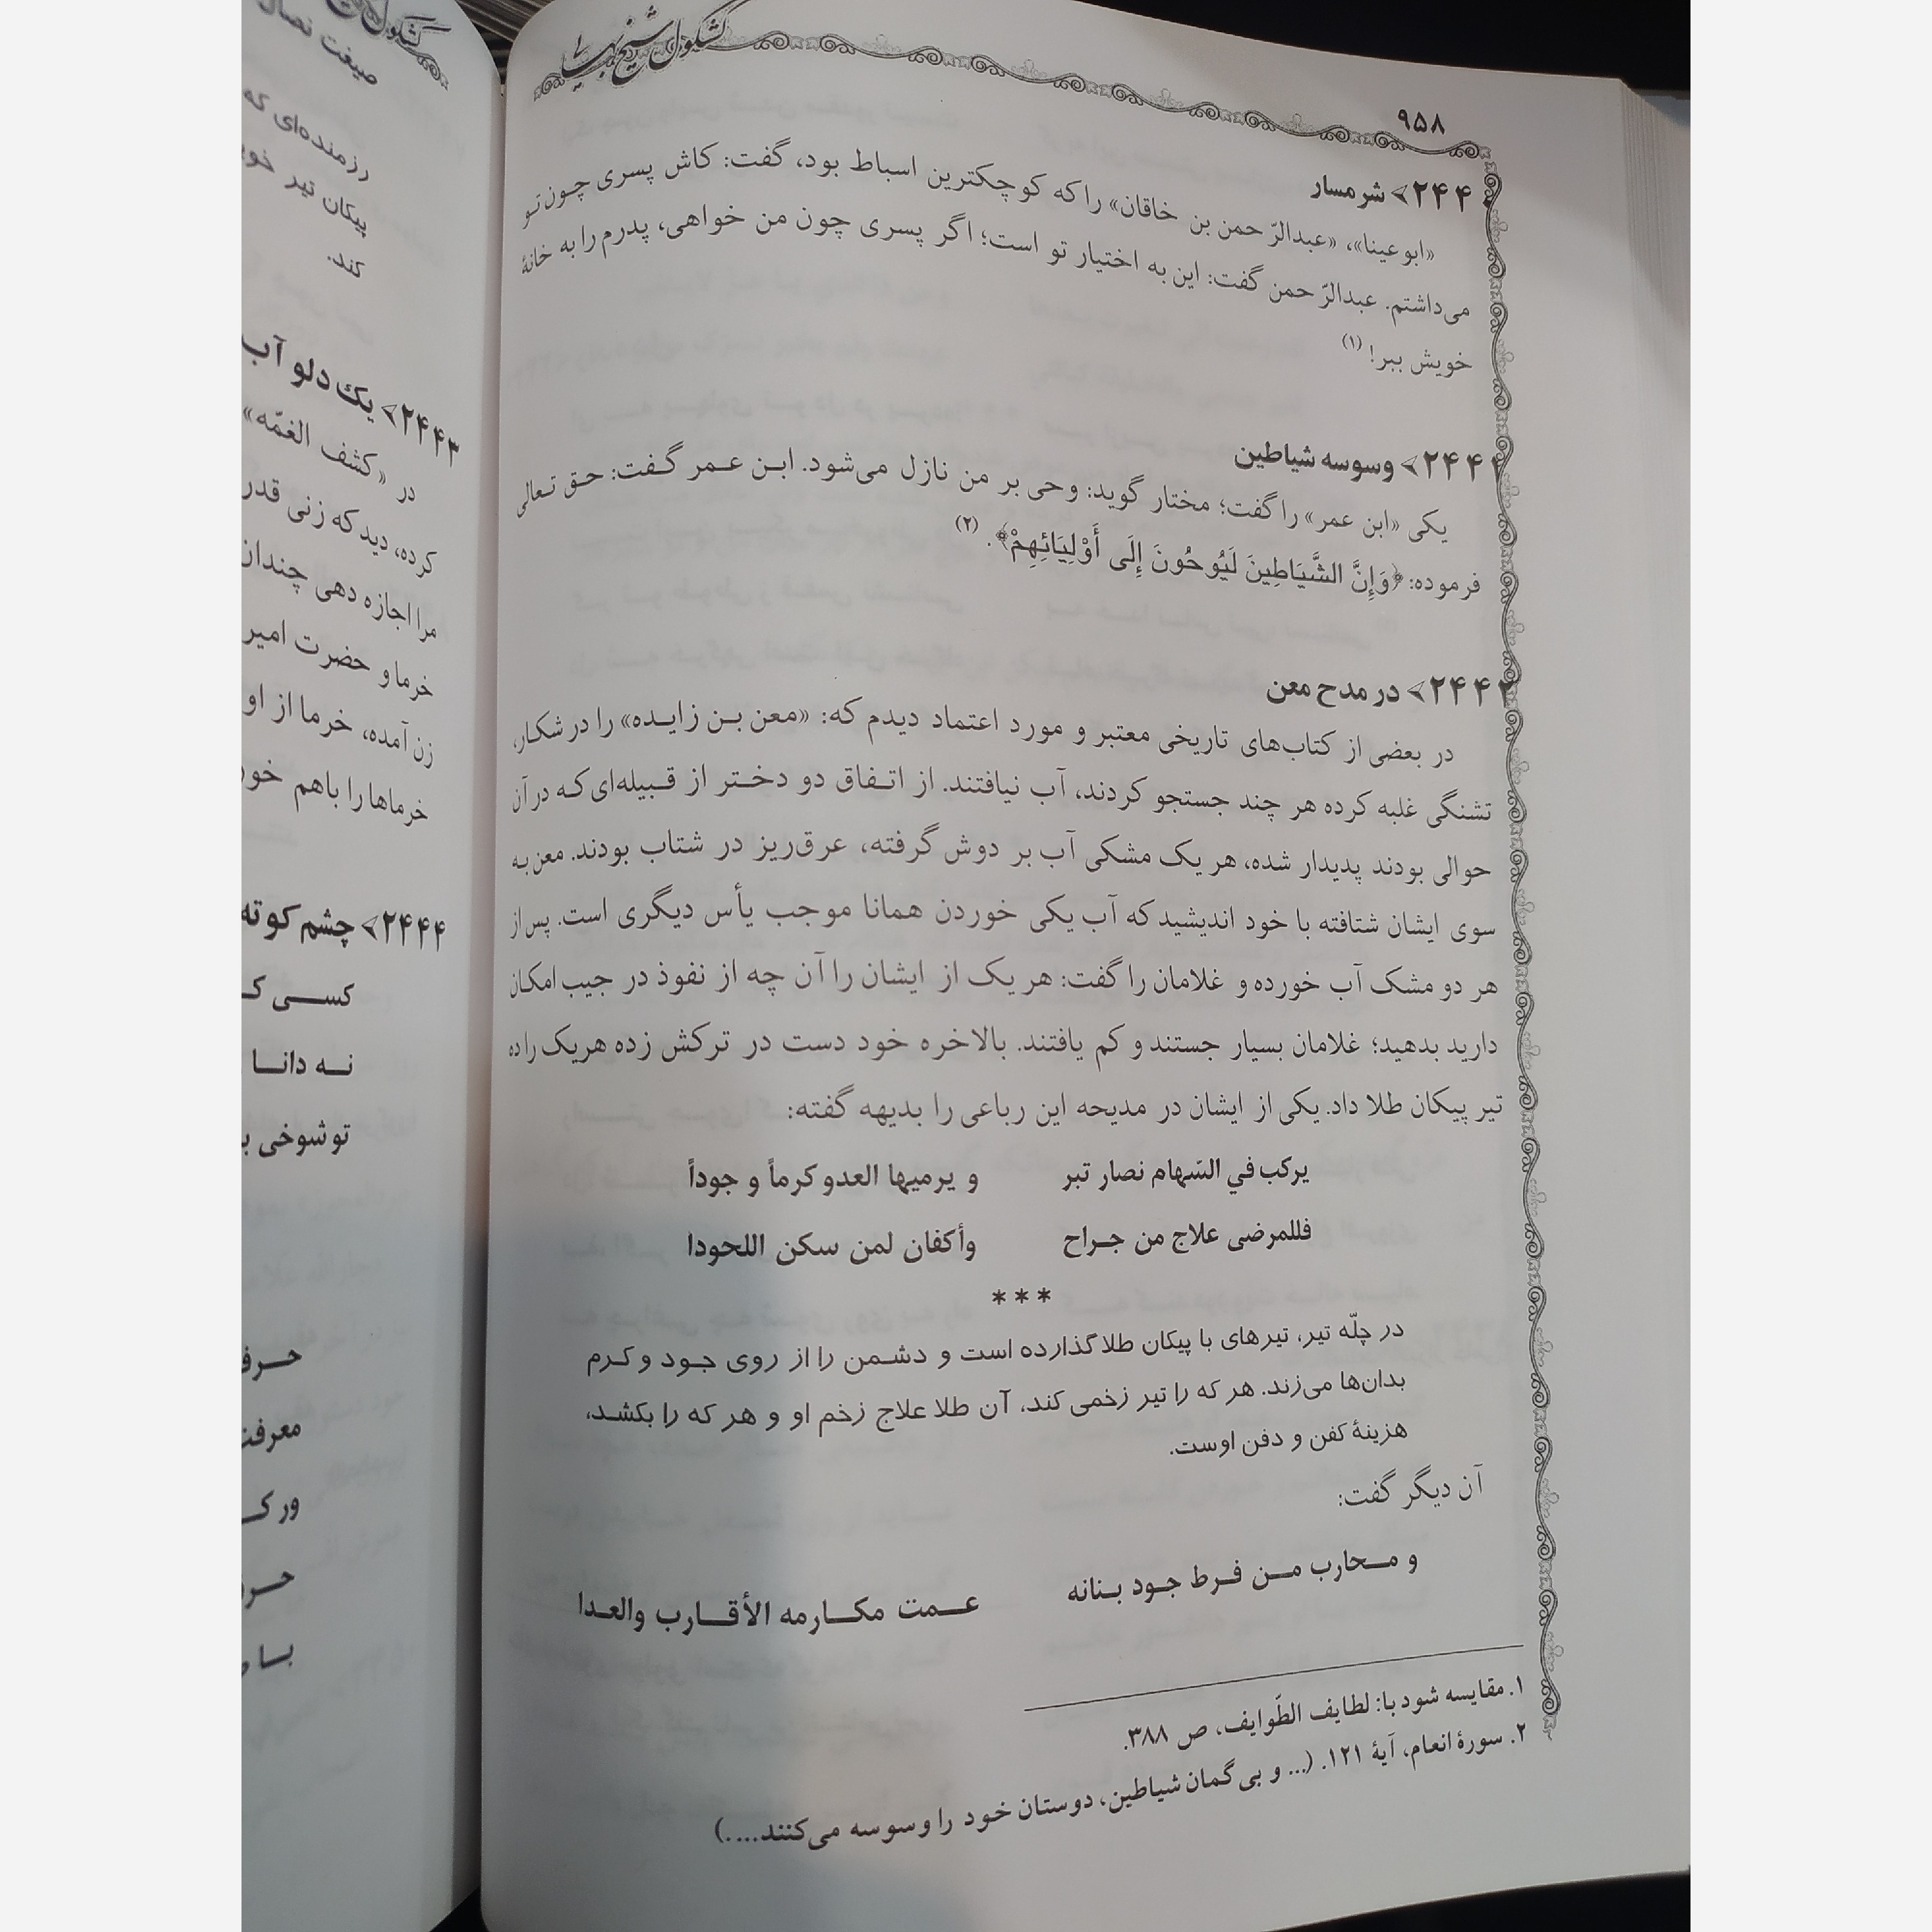 کشکول شیخ بهایی
۹۵۸
۲۴۴۰> شرمسار
«ابو عینا»، «عبدالرّحمن بن خاقان» را که کوچکترین اسباط بود، گفت: کاش پسری چون تو
می‌داشتم. عبدالرّحمن گفت: این به اختیار تو است؛ اگر پسری چون من خواهی، پدرم را به خانهٔ
خویش ببر! (۱)
۲۴۴۱> وسوسه شیاطین
یکی «ابن عمر» را گفت؛ مختار گوید: وحی بر من نازل می‌شود. ابن عمر گفت: حق تعالی
فرموده: ﴿وَإِنَّ الشَّیَاطِینَ لَیُوحُونَ إِلَی أَوْلِیَائِهِمْ﴾. (۲)
۲۴۴۲> در مدح معن
در بعضی از کتاب‌های تاریخی معتبر و مورد اعتماد دیدم که: «معن بن زایده» را در شکار،
تشنگی غلبه کرده هر چند جستجو کردند، آب نیافتند. از اتفاق دو دختر از قبیله‌ای که در آن
حوالی بودند پدیدار شده، هر یک مشکی آب بر دوش گرفته، عرق‌ریز در شتاب بودند. معن به
سوی ایشان شتافته با خود اندیشید که آب یکی خوردن همانا موجب یأس دیگری است. پس از
هر دو مشک آب خورده و غلامان را گفت: هر یک از ایشان را آن چه از نفوذ در جیب امکان
دارید بدهید؛ غلامان بسیار جستند و کم یافتند. بالاخره خود دست در ترکش زده هریک را ده
تیر پیکان طلا داد. یکی از ایشان در مدیحه این رباعی را بدیهه گفته:
یرکب في السّهام نصار تبر و یرمیها العدو کرماً و جوداً
فللمرضی علاج من جراح وأکفان لمن سکن اللحودا
***
در چلّه تیر، تیرهای با پیکان طلا گذارده است و دشمن را از روی جود و کرم
بدان‌ها می‌زند. هر که را تیر زخمی کند، آن طلا علاج زخم او و هر که را بکشد،
هزینهٔ کفن و دفن اوست.
آن دیگر گفت:
و محارب من فرط جود بنانه عمت مکارمه الأقارب والعدا
۱. مقایسه شود با: لطایف الطّوایف، ص ۳۸۸.
۲. سورهٔ انعام، آیهٔ ۱۲۱. (... و بی‌گمان شیاطین، دوستان خود را وسوسه می‌کنند....)
صیغت نصال
رزمنده‌ای که
پیکان تیر
کند.
۲۴۴۳> یک دلو آب
در «کشف الغمّه»
کرده، دید که زنی قدر
مرا اجازه دهی چندان
خرما و حضرت امیر
زن آمده، خرما از او
خرماها را باهم
۲۴۴۴> چشم کوته
کسی
نه دانا
تو شوخی